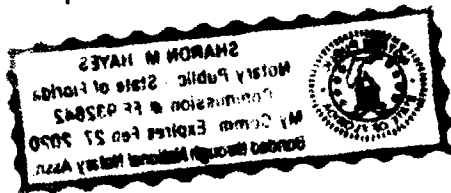 SHARON M. HAYES
Notary Public - State of Florida
Commission # FF 932842
My Comm. Expires Feb 27, 2020
Bonded through National Notary Assn.